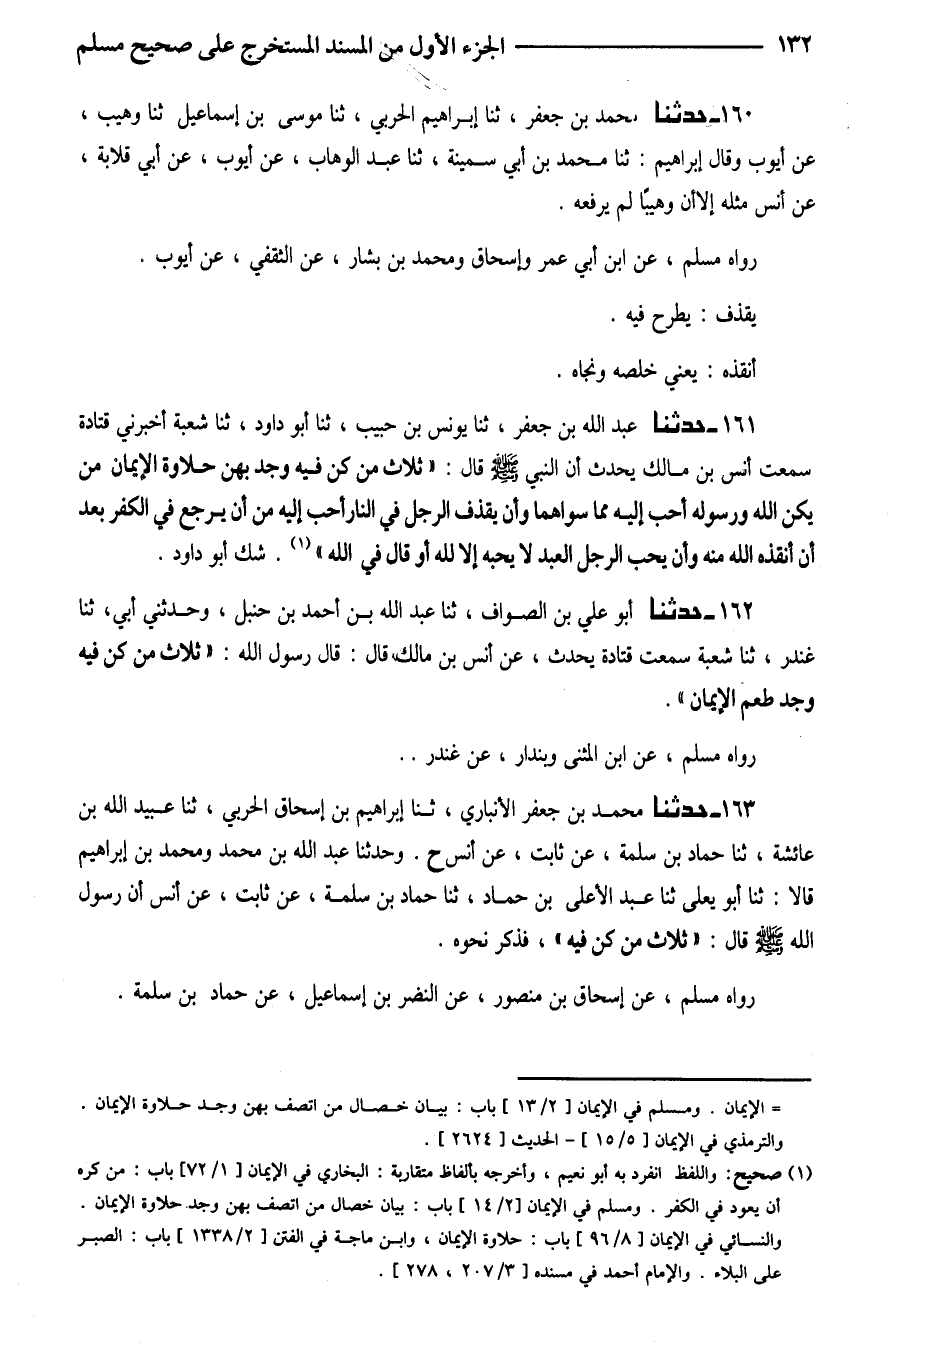 ١٣٢ ــــــــ الجزء الأول من المسند المستخرج على صحيح مسلم
١٦٠ـ حدثنا محمد بن جعفر ، ثنا إبراهيم الحربي ، ثنا موسى بن إسماعيل ثنا وهيب ،
عن أيوب وقال إبراهيم : ثنا محمد بن أبي سمينة ، ثنا عبد الوهاب ، عن أيوب ، عن أبي قلابة ،
عن أنس مثله إلاأن وهيبًا لم يرفعه .
رواه مسلم ، عن ابن أبي عمر وإسحاق ومحمد بن بشار ، عن الثقفي ، عن أيوب .
يقذف : يطرح فيه .
أنقذه : يعني خلصه ونجاه .
١٦١ـ حدثنا عبد الله بن جعفر ، ثنا يونس بن حبيب ، ثنا أبو داود ، ثنا شعبة أخبرني قتادة
سمعت أنس بن مالك يحدث أن النبي ﷺ قال : « ثلاث من كن فيه وجد بهن حلاوة الإيمان من
يكن الله ورسوله أحب إليه مما سواهما وأن يقذف الرجل في النارأحب إليه من أن يرجع في الكفر بعد
أن أنقذه الله منه وأن يحب الرجل العبد لا يحبه إلا لله أو قال في الله »(١) . شك أبو داود .
١٦٢ـ حدثنا أبو علي بن الصواف ، ثنا عبد الله بن أحمد بن حنبل ، وحدثني أبي، ثنا
غندر ، ثنا شعبة سمعت قتادة يحدث ، عن أنس بن مالك قال : قال رسول الله : « ثلاث من كن فيه
وجد طعم الإيمان » .
رواه مسلم ، عن ابن المثنى وبندار ، عن غندر . .
١٦٣ـ حدثنا محمد بن جعفر الأنباري ، ثنا إبراهيم بن إسحاق الحربي ، ثنا عبيد الله بن
عائشة ، ثنا حماد بن سلمة ، عن ثابت ، عن أنس ح . وحدثنا عبد الله بن محمد ومحمد بن إبراهيم
قالا : ثنا أبو يعلى ثنا عبد الأعلى بن حماد ، ثنا حماد بن سلمة ، عن ثابت ، عن أنس أن رسول
الله ﷺ قال : « ثلاث من كن فيه » ، فذكر نحوه .
رواه مسلم ، عن إسحاق بن منصور ، عن النضر بن إسماعيل ، عن حماد بن سلمة .
= الإيمان . ومسلم في الإيمان [ ١٣/٢ ] باب : بيان خصال من اتصف بهن وجد حلاوة الإيمان .
والترمذي في الإيمان [ ١٥/٥ ] – الحديث [ ٢٦٢٤ ] .
(١) صحيح: واللفظ انفرد به أبو نعيم ، وأخرجه بألفاظ متقاربة : البخاري في الإيمان [ ٧٢/١] باب : من كره
أن يعود في الكفر . ومسلم في الإيمان [١٤/٢ ] باب : بيان خصال من اتصف بهن وجد حلاوة الإيمان .
والنسائي في الإيمان [ ٩٦/٨ ] باب : حلاوة الإيمان ، وابن ماجة في الفتن [ ١٣٣٨/٢ ] باب : الصبر
على البلاء . والإمام أحمد في مسنده [ ٢٠٧/٣ ، ٢٧٨ ] .